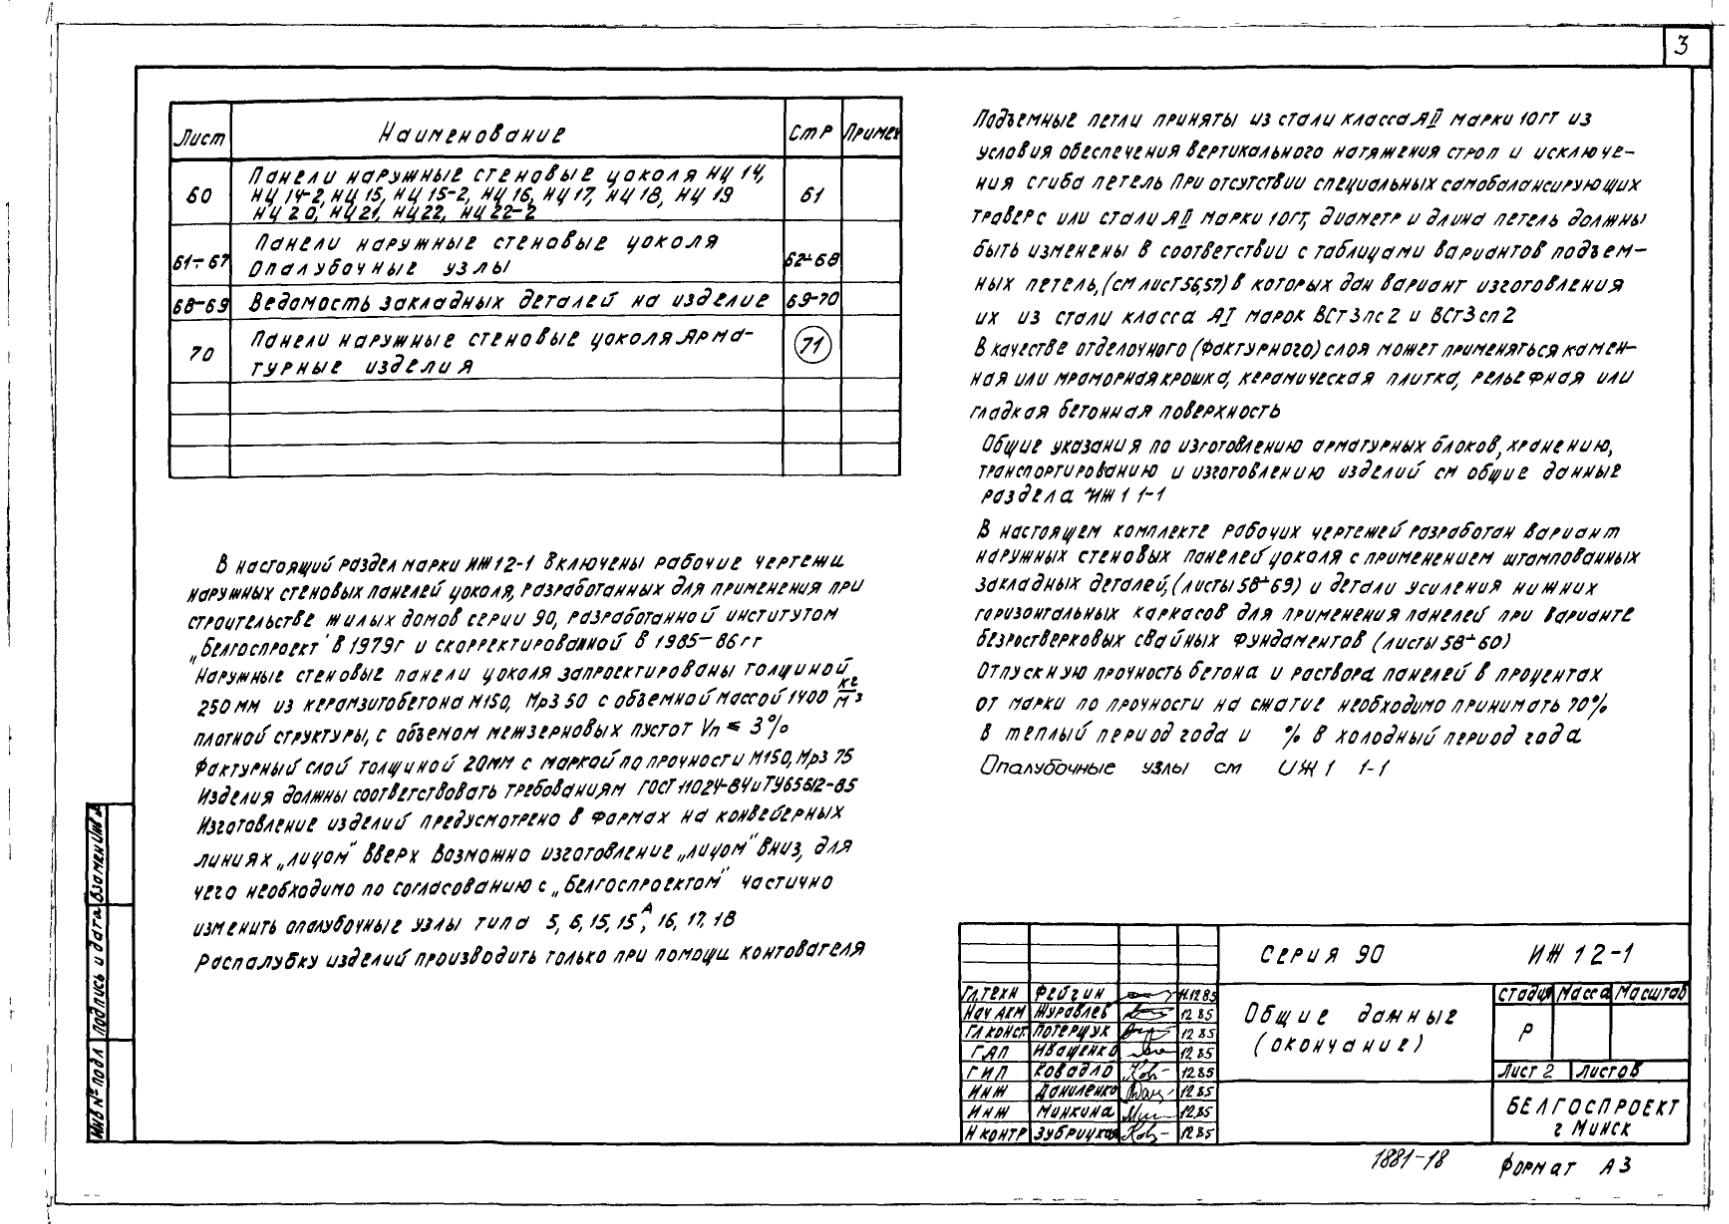 3
Лист Наименование Стр Примеч
60 Панели наружные стеновые цоколя НЦ 14, 61
НЦ 14-2, НЦ 15, НЦ 15-2, НЦ 16, НЦ 17, НЦ 18, НЦ 19
НЦ 20, НЦ 21, НЦ 22, НЦ 22-2
Панели наружные стеновые цоколя
61÷67 Опалубочные узлы 62÷68
68-69 Ведомость закладных деталей на изделие 69-70
70 Панели наружные стеновые цоколя Арма- 71
турные изделия
В настоящий раздел марки ИЖ 12-1 включены рабочие чертежи
наружных стеновых панелей цоколя, разработанных для применения при
строительстве жилых домов серии 90, разработанной институтом
„Белгоспроект" в 1979г и скорректированной в 1985-86гг
Наружные стеновые панели цоколя запроектированы толщиной
250мм из керамзитобетона М150, Мрз 50 с объемной массой 1400 кг/м3
плотной структуры, с объемом межзерновых пустот Vп ≤ 3%
Фактурный слой толщиной 20мм с маркой по прочности М150, Мрз 75
Изделия должны соответствовать требованиям ГОСТ 11024-84 и ТУ65612-85
Изготовление изделий предусмотрено в формах на конвейерных
линиях „лицом" вверх Возможно изготовление „лицом" вниз, для
чего необходимо по согласованию с „Белгоспроектом" частично
изменить опалубочные узлы типа 5, 6, 15, 15А, 16, 17, 18
Распалубку изделий производить только при помощи контователя
Подъемные петли приняты из стали класса АII марки 10ГТ из
условия обеспечения вертикального натяжения строп и исключе-
ния сгиба петель При отсутствии специальных самобалансирующих
траверс или стали АII марки 10ГТ, диаметр и длина петель должны
быть изменены в соответствии с таблицами вариантов подъем-
ных петель, (см лист 56,57) в которых дан вариант изготовления
их из стали класса АI марок ВСт3пс2 и ВСт3сп2
В качестве отделочного (фактурного) слоя может применяться камен-
ная или мраморная крошка, керамическая плитка, рельефная или
гладкая бетонная поверхность
Общие указания по изготовлению арматурных блоков, хранению,
транспортированию и изготовлению изделий см общие данные
раздела ИЖ 1 1-1
В настоящем комплекте рабочих чертежей разработан вариант
наружных стеновых панелей цоколя с применением штампованных
закладных деталей, (листы 58÷69) и детали усиления нижних
горизонтальных каркасов для применения панелей при варианте
безростверковых свайных фундаментов (листы 58÷60)
Отпускную прочность бетона и раствора панелей в процентах
от марки по прочности на сжатие необходимо принимать 70%
в теплый период года и % в холодный период года
Опалубочные узлы см ИЖ 1 1-1
Взамен инв №
Подпись и дата
Инв № подл
Серия 90 ИЖ 12-1
Гл.техн Фейгин 11.12.85
Нач АКМ Журавлев 12.85
Гл конст. Потерщук 12.85
ГАП Иващенко 12.85
ГИП Ковадло 12.85
Инж Даниленко 12.85
Инж Минкина 12.85
Н контр Зубрицкая 12.85
Общие данные
(окончание)
Стадия Масса Масштаб
Р
Лист 2 Листов
БЕЛГОСПРОЕКТ
г Минск
1881-18
Формат А3